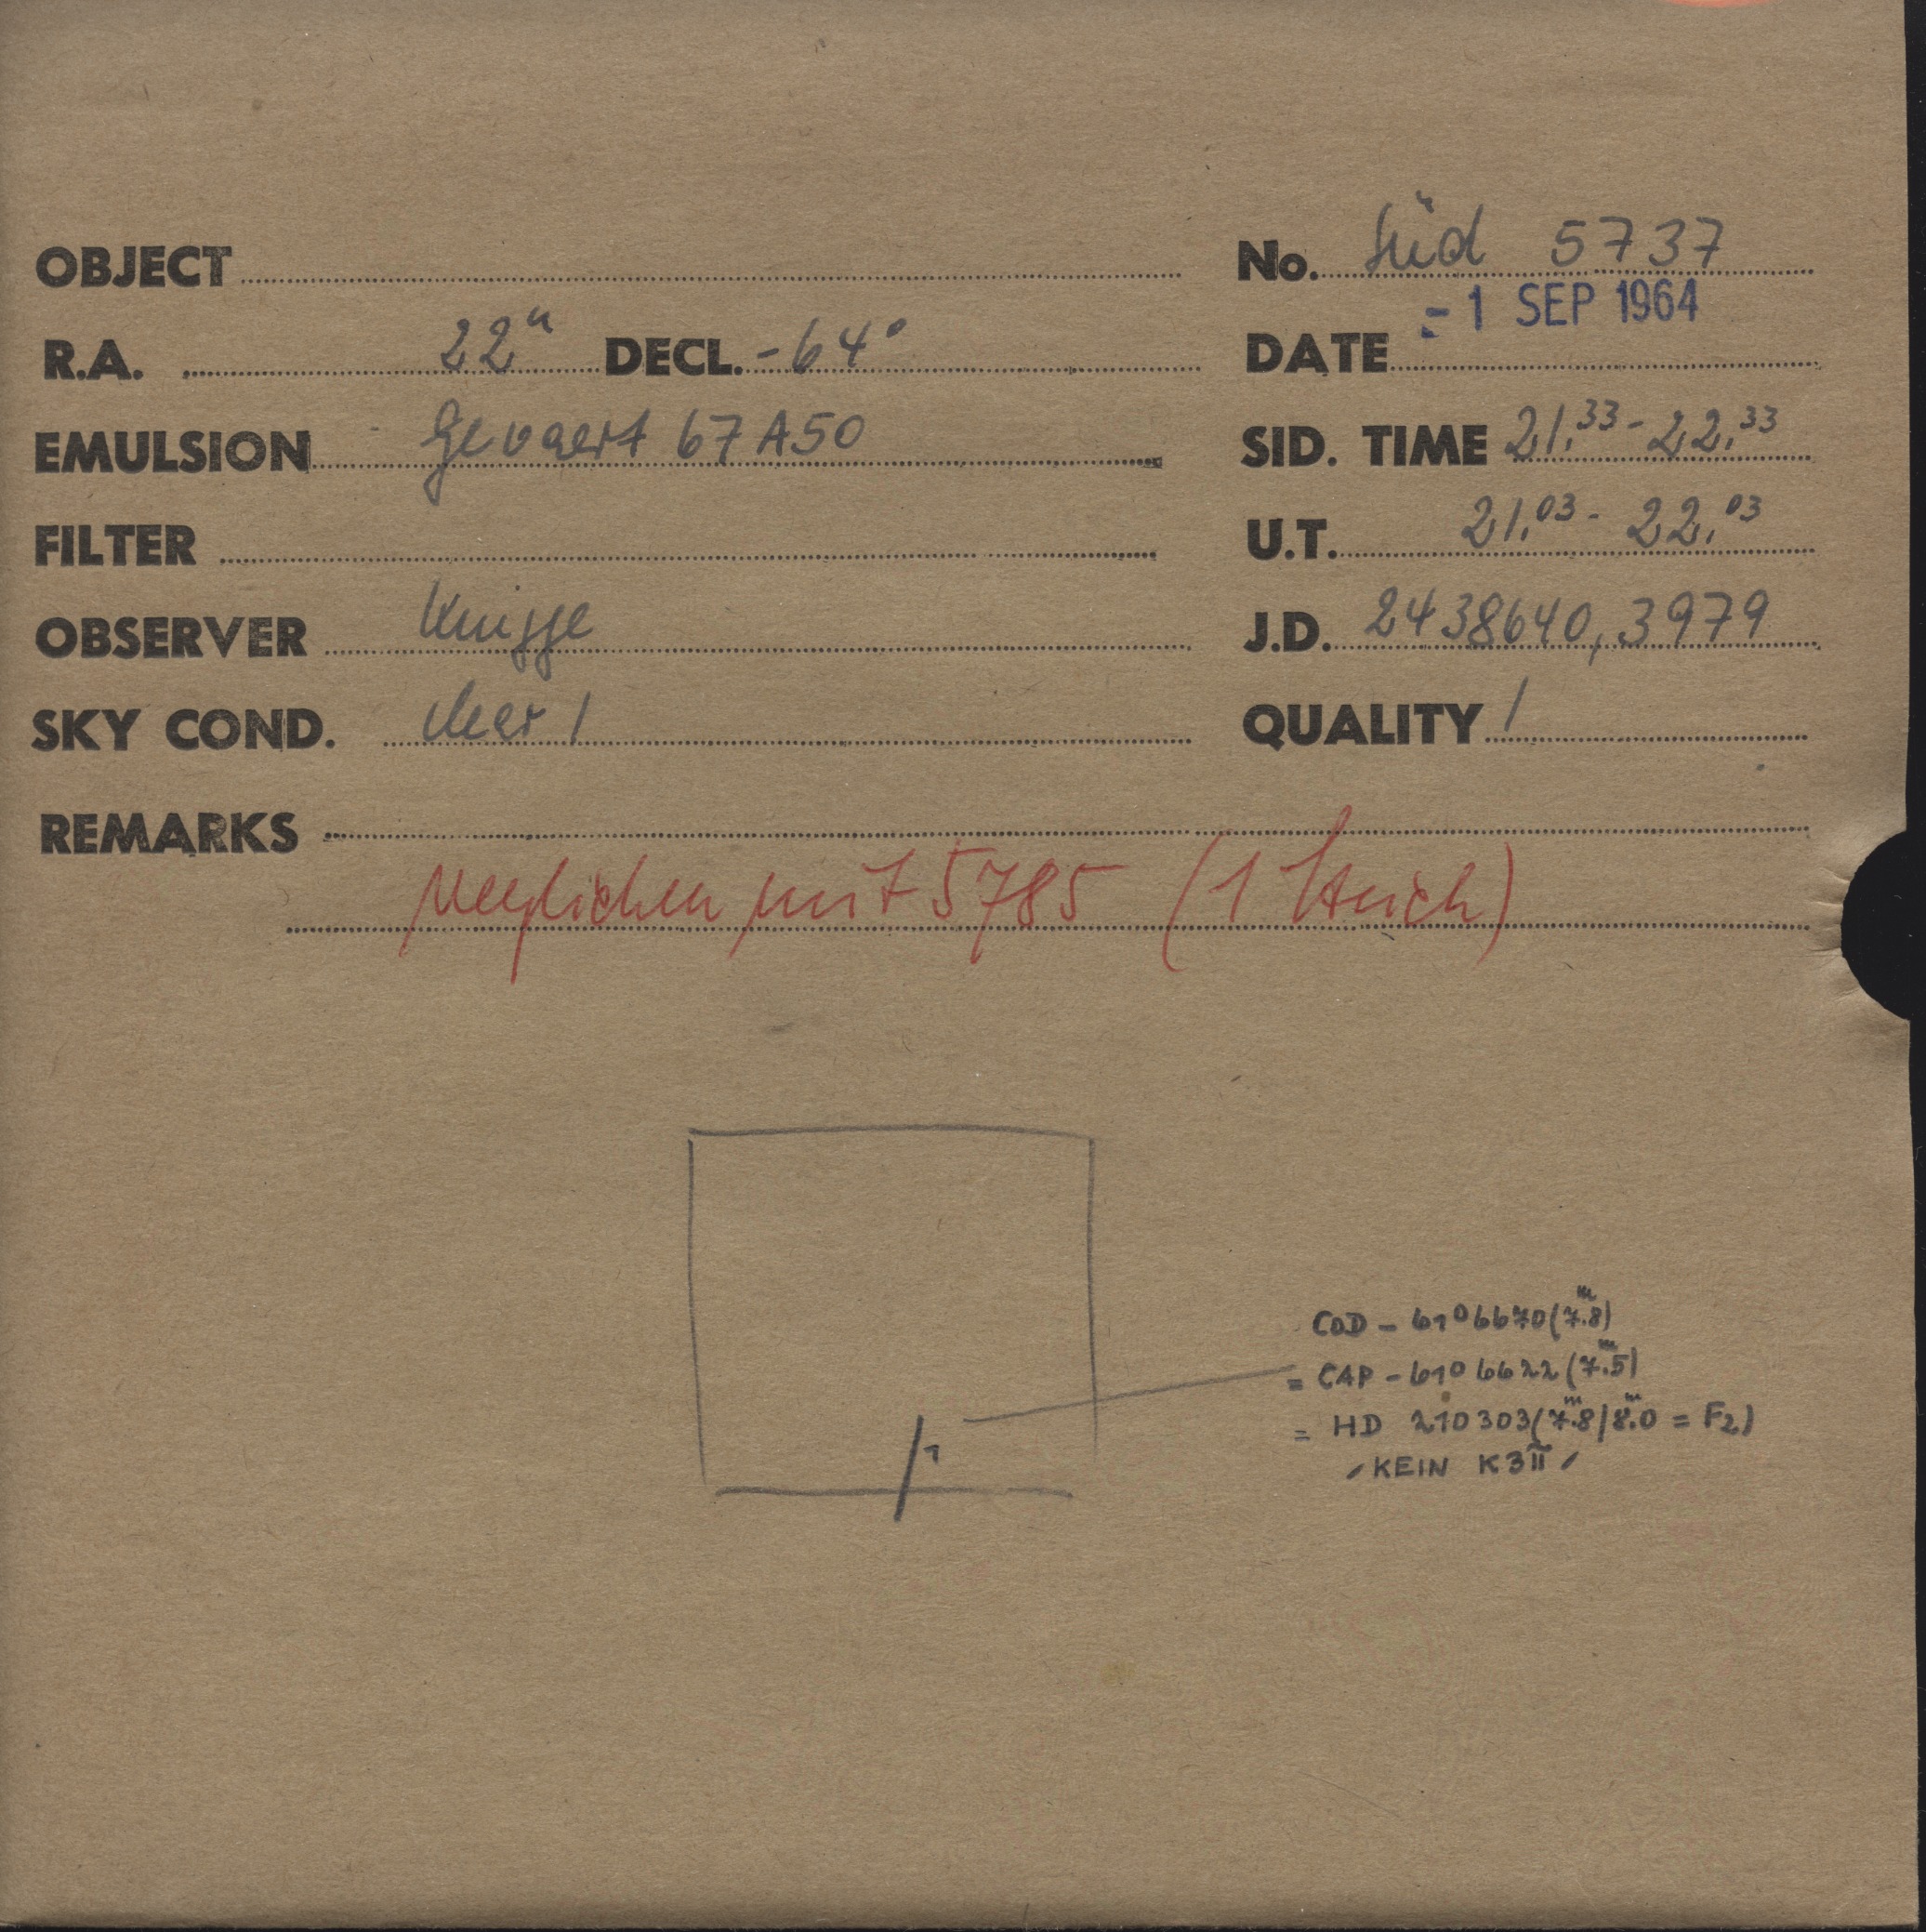 OBJECT No. Süd 5737
R.A. 22ʰ DECL. -64° DATE -1 SEP 1964
EMULSION Gevaert 67A50 SID. TIME 21.33 - 22.33
FILTER U.T. 21.03 - 22.03
OBSERVER Knigge J.D. 2438640,3979
SKY COND. clear 1 QUALITY 1
REMARKS
verglichen mit 5785 (1 Strich)
COD - 61° 6670 (7ᵐ.8)
= CAP - 61° 6622 (7ᵐ.5)
= HD 210303 (7ᵐ.8/8ᵐ.0 = F2)
1
/ KEIN K3II /